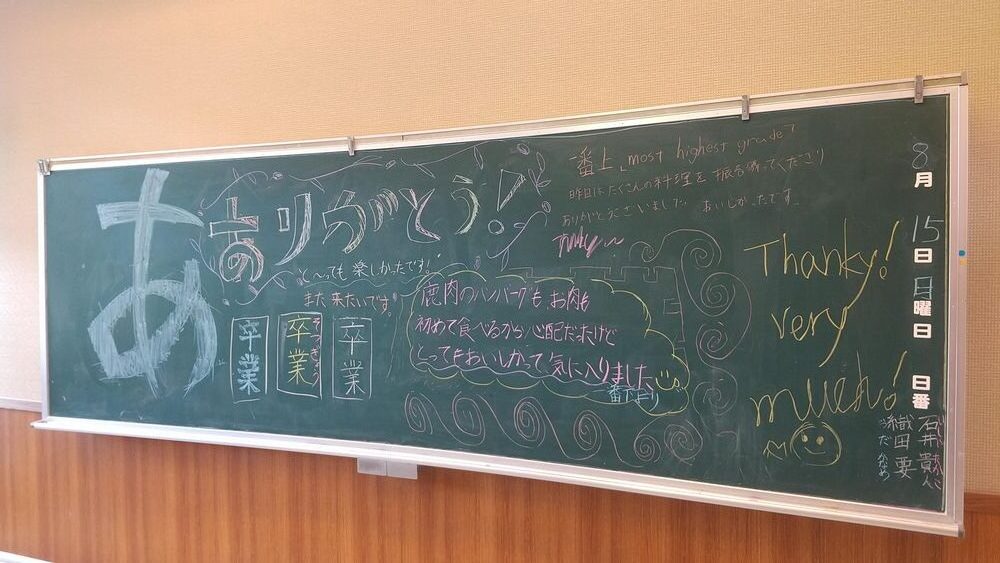 あ
ありがとう!
と〜っても楽しかったです!
また来たいです!
卒業
卒業
そつぎょう
卒業
一番上 most highest grade
昨日はたくさんの料理を振る舞ってくださり
ありがとうございました。おいしかったです。
鹿肉のハンバーグも、お肉も
初めて食べるから心配だったけど
とってもおいしかって気に入りました
番下より
Thanky!
very
much!
8月
15日
日曜日
日番
石井貴人
織田要
おだ かなめ